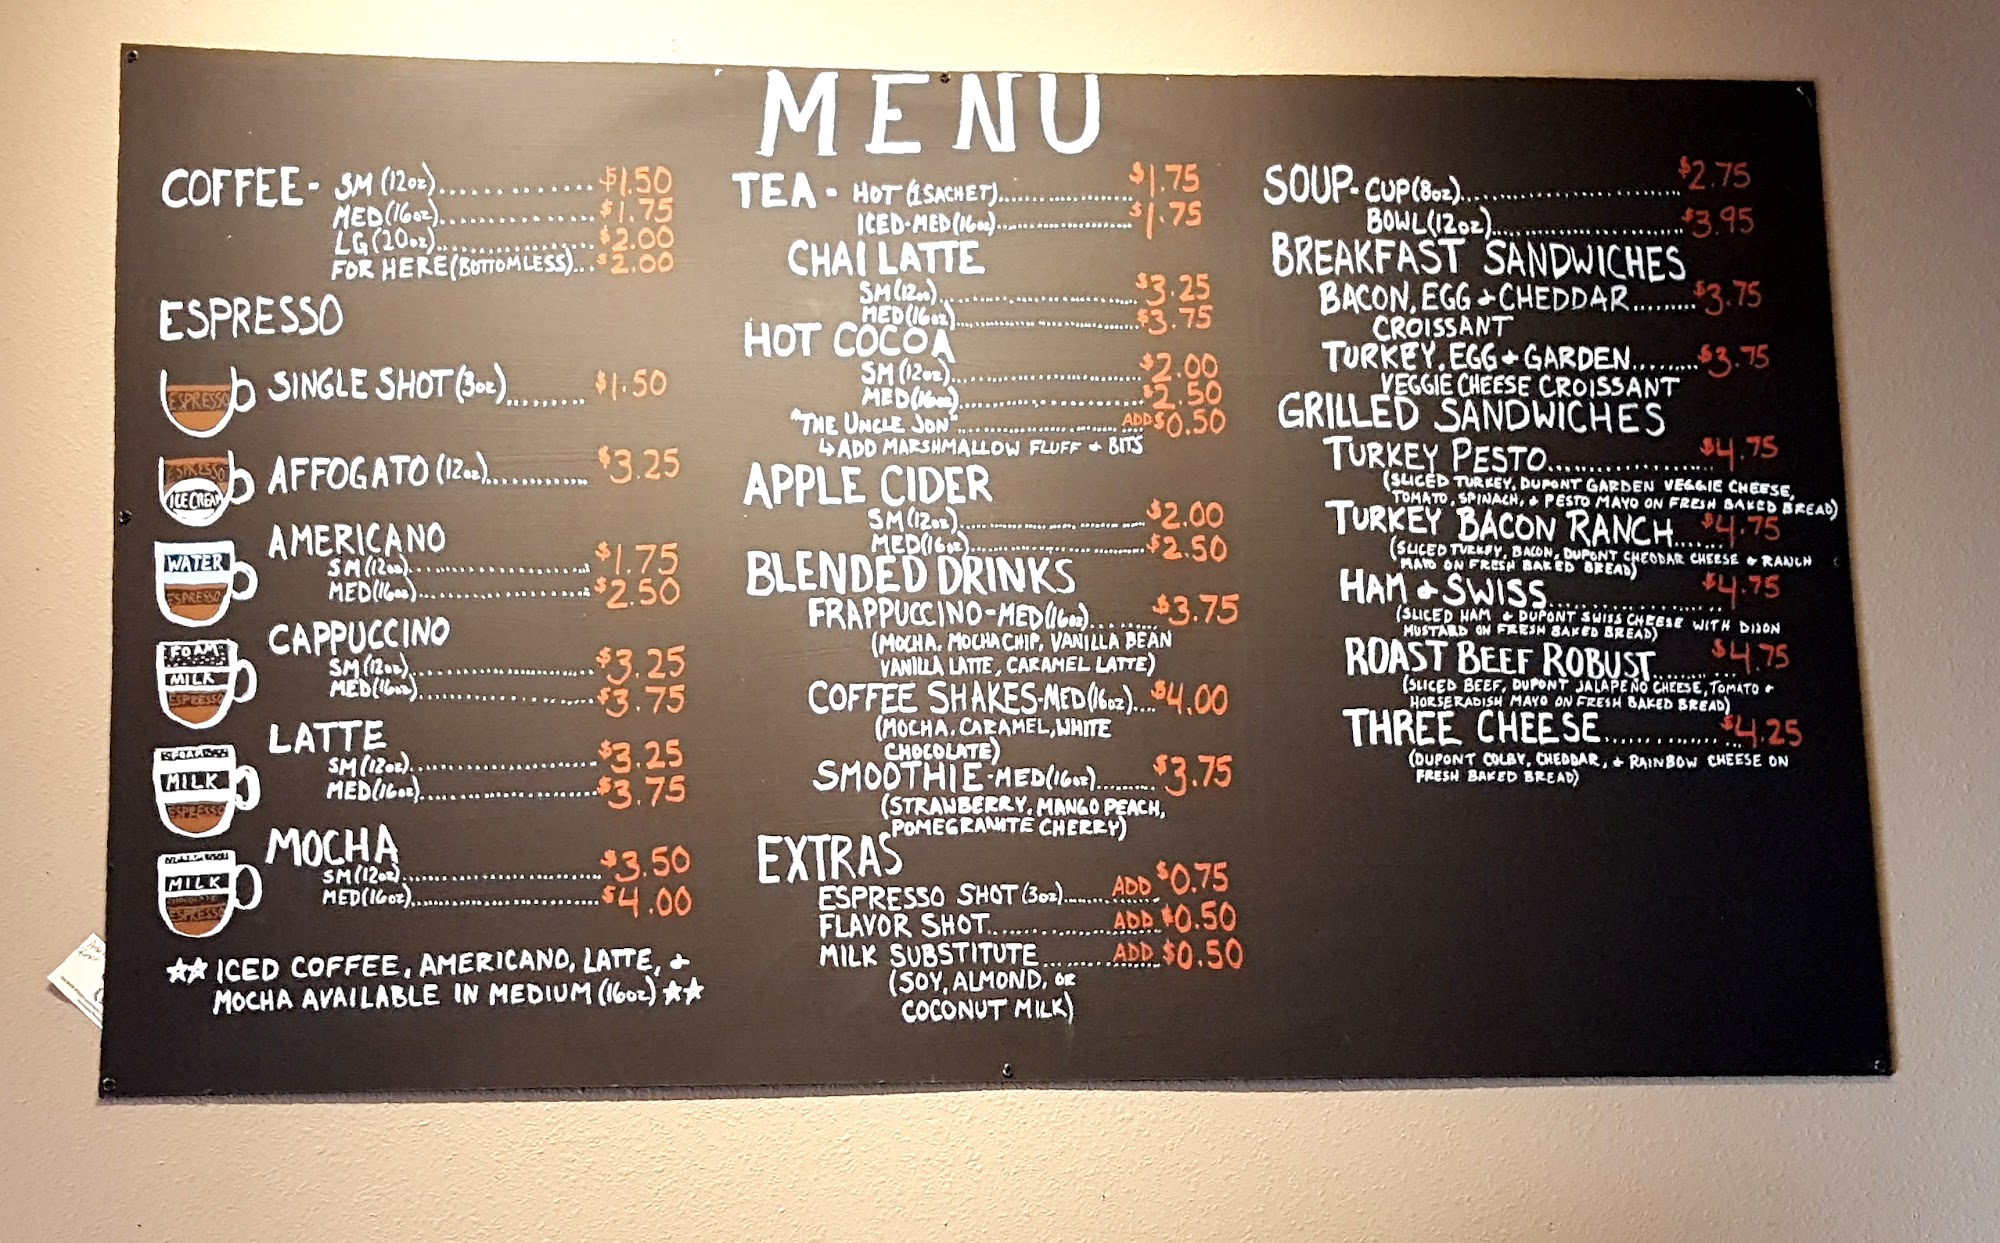 MENU
COFFEE - SM (12oz)............. $1.50
MED (16oz)............. $1.75
LG (20oz)............. $2.00
FOR HERE (BOTTOMLESS)... $2.00
ESPRESSO
ESPRESSO
SINGLE SHOT (3oz)......... $1.50
ESPRESSO
ICE CREAM
AFFOGATO (12oz)............ $3.25
WATER
ESPRESSO
AMERICANO
SM (12oz)..................... $1.75
MED (16oz)..................... $2.50
FOAM
MILK
ESPRESSO
CAPPUCCINO
SM (12oz)..................... $3.25
MED (16oz)..................... $3.75
FOAM
MILK
ESPRESSO
LATTE
SM (12oz)..................... $3.25
MED (16oz)..................... $3.75
MILK
CHOCOLATE
ESPRESSO
MOCHA
SM (12oz)..................... $3.50
MED (16oz)..................... $4.00
★★ ICED COFFEE, AMERICANO, LATTE, &
MOCHA AVAILABLE IN MEDIUM (16oz) ★★
TEA - HOT (1 SACHET)................ $1.75
ICED-MED (16oz)................ $1.75
CHAI LATTE
SM (12oz)..................... $3.25
MED (16oz)..................... $3.75
HOT COCOA
SM (12oz)..................... $2.00
MED (16oz)..................... $2.50
"THE UNCLE JON"..................... ADD $0.50
↳ ADD MARSHMALLOW FLUFF & BITS
APPLE CIDER
SM (12oz)..................... $2.00
MED (16oz)..................... $2.50
BLENDED DRINKS
FRAPPUCCINO-MED (16oz)......... $3.75
(MOCHA, MOCHA CHIP, VANILLA BEAN
VANILLA LATTE, CARAMEL LATTE)
COFFEE SHAKES-MED (16oz).... $4.00
(MOCHA, CARAMEL, WHITE
CHOCOLATE)
SMOOTHIE-MED (16oz)......... $3.75
(STRAWBERRY, MANGO PEACH,
POMEGRANITE CHERRY)
EXTRAS
ESPRESSO SHOT (3oz)............ ADD $0.75
FLAVOR SHOT..................... ADD $0.50
MILK SUBSTITUTE............... ADD $0.50
(SOY, ALMOND, OR
COCONUT MILK)
SOUP - CUP (8oz)........................ $2.75
BOWL (12oz)........................ $3.95
BREAKFAST SANDWICHES
BACON, EGG & CHEDDAR......... $3.75
CROISSANT
TURKEY, EGG & GARDEN......... $3.75
VEGGIE CHEESE CROISSANT
GRILLED SANDWICHES
TURKEY PESTO.................. $4.75
(SLICED TURKEY, DUPONT GARDEN VEGGIE CHEESE,
TOMATO, SPINACH, & PESTO MAYO ON FRESH BAKED BREAD)
TURKEY BACON RANCH....... $4.75
(SLICED TURKEY, BACON, DUPONT CHEDDAR CHEESE & RANCH
MAYO ON FRESH BAKED BREAD)
HAM & SWISS.................. $4.75
(SLICED HAM & DUPONT SWISS CHEESE WITH DIJON
MUSTARD ON FRESH BAKED BREAD)
ROAST BEEF ROBUST............ $4.75
(SLICED BEEF, DUPONT JALAPEÑO CHEESE, TOMATO &
HORSERADISH MAYO ON FRESH BAKED BREAD)
THREE CHEESE.................. $4.25
(DUPONT COLBY, CHEDDAR, & RAINBOW CHEESE ON
FRESH BAKED BREAD)